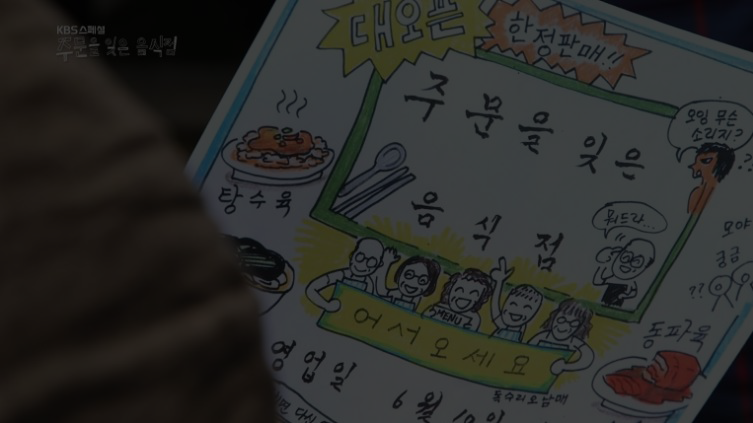 KBS스페셜
주문을 잊은 음식점
대오픈
한정판매!!
주문을 잊은
음식점
오잉 무슨
소리지?
뭐드라...
모야
궁금
??
탕수육
MENU
어서오세요
동파육
영업일
6월